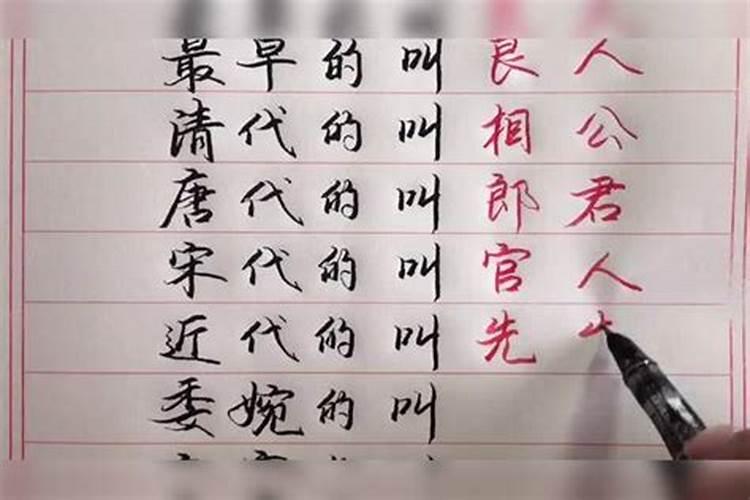 最早的叫良人
清代的叫相公
唐代的叫郎君
宋代的叫官人
近代的叫先
委婉的叫